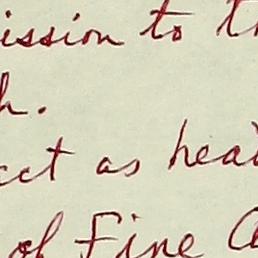 ission to th
h.
ect as head
of Fine A